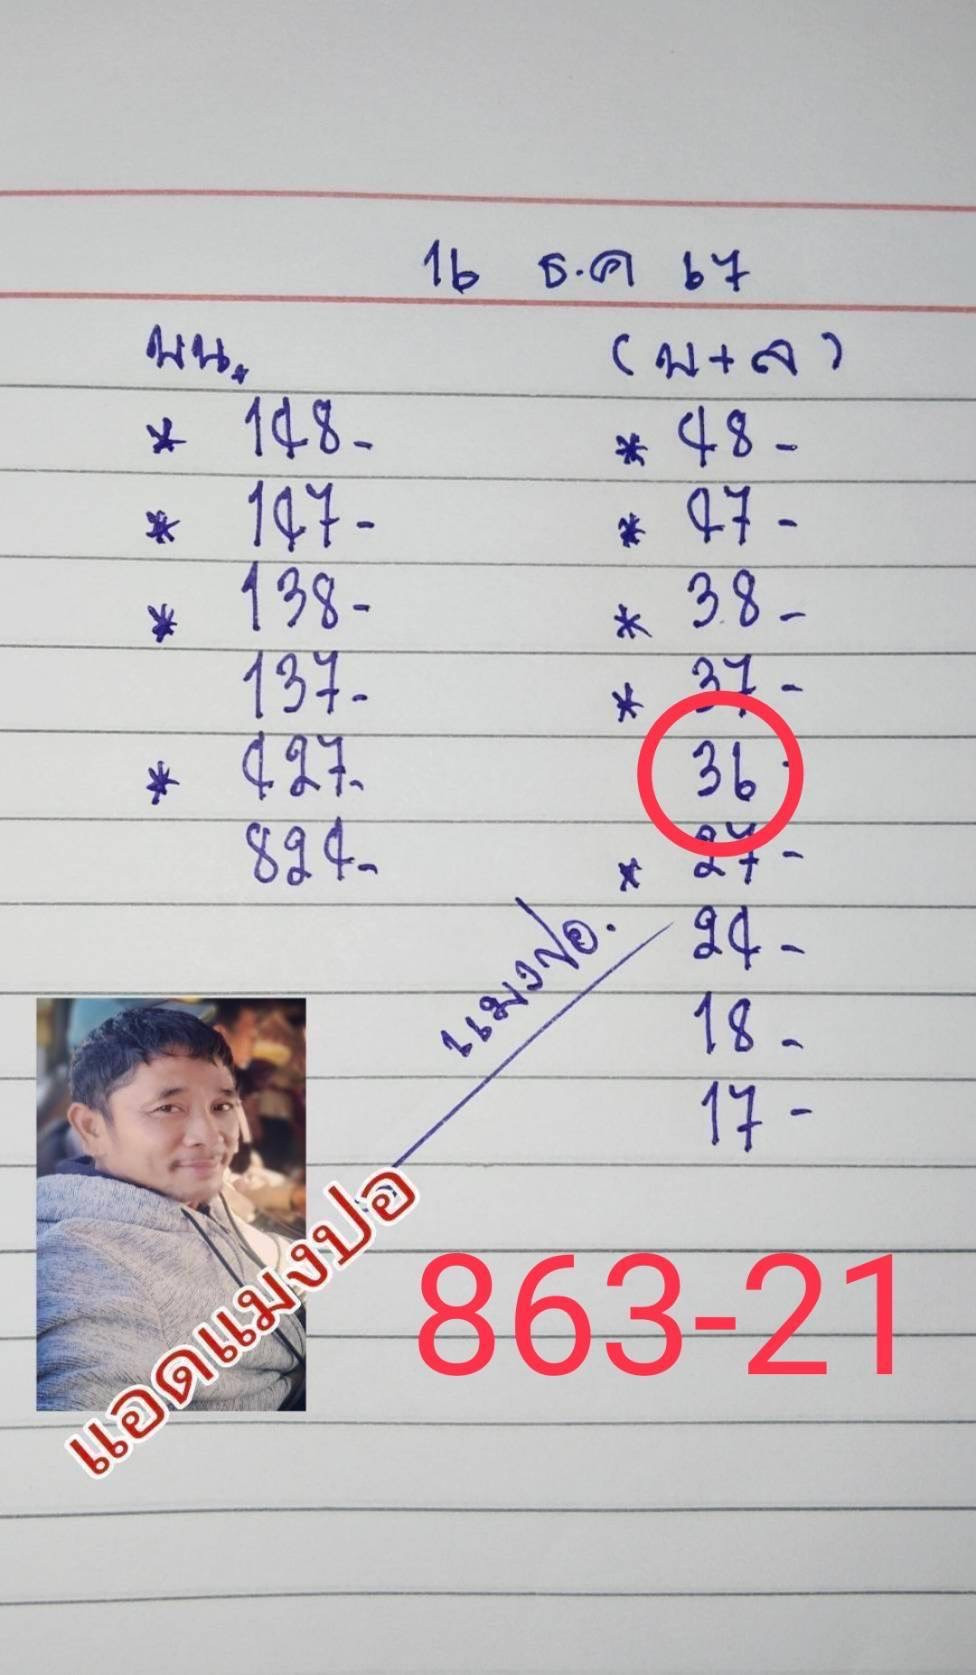 16 ธ.ค 67
บน.
(บ+ล)
* 148-
* 147-
* 138-
137-
* 427-
824-
* 48-
* 47-
* 38-
* 37-
36
* 27-
24-
18-
17-
แมงปอ.
แอดแมงปอ
863-21